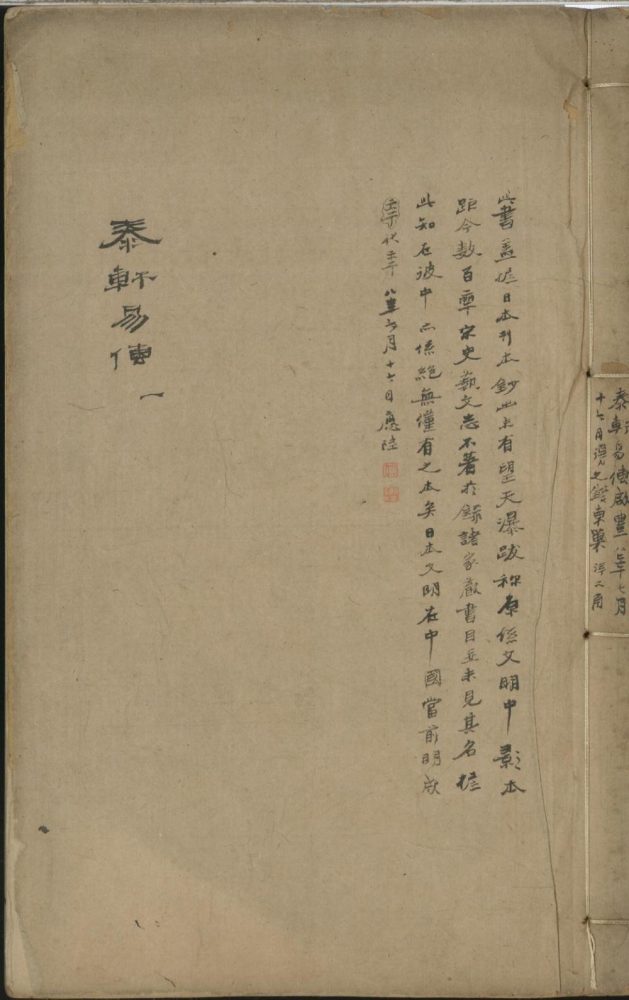 此書蓋據日本刊本鈔出上有望天瀑跋稱原係文明中影本
距今數百年宋史藝文志不著於錄諸家藏書目並未見其名據
此知在彼中亦係絕無僅有之本矣日本文明在中國當前明成
八年六月十六日應陸
泰軒易傳 一
泰軒易傳咸豐八年七月
十六日